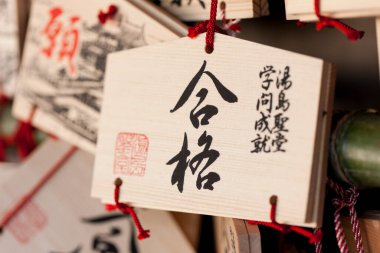 湯島聖堂
学問成就
合格
願